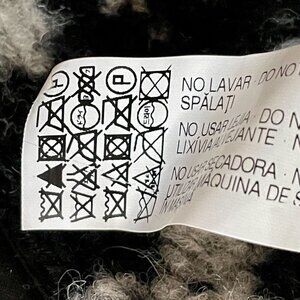 NO LAVAR · DO NO
SPĂLAȚI
NO USAR LEJIA · DO
LIXIVIA/ALEJANTE · N
NO USAR SECADORA · N
UTILIZE MÁQUINA DE S